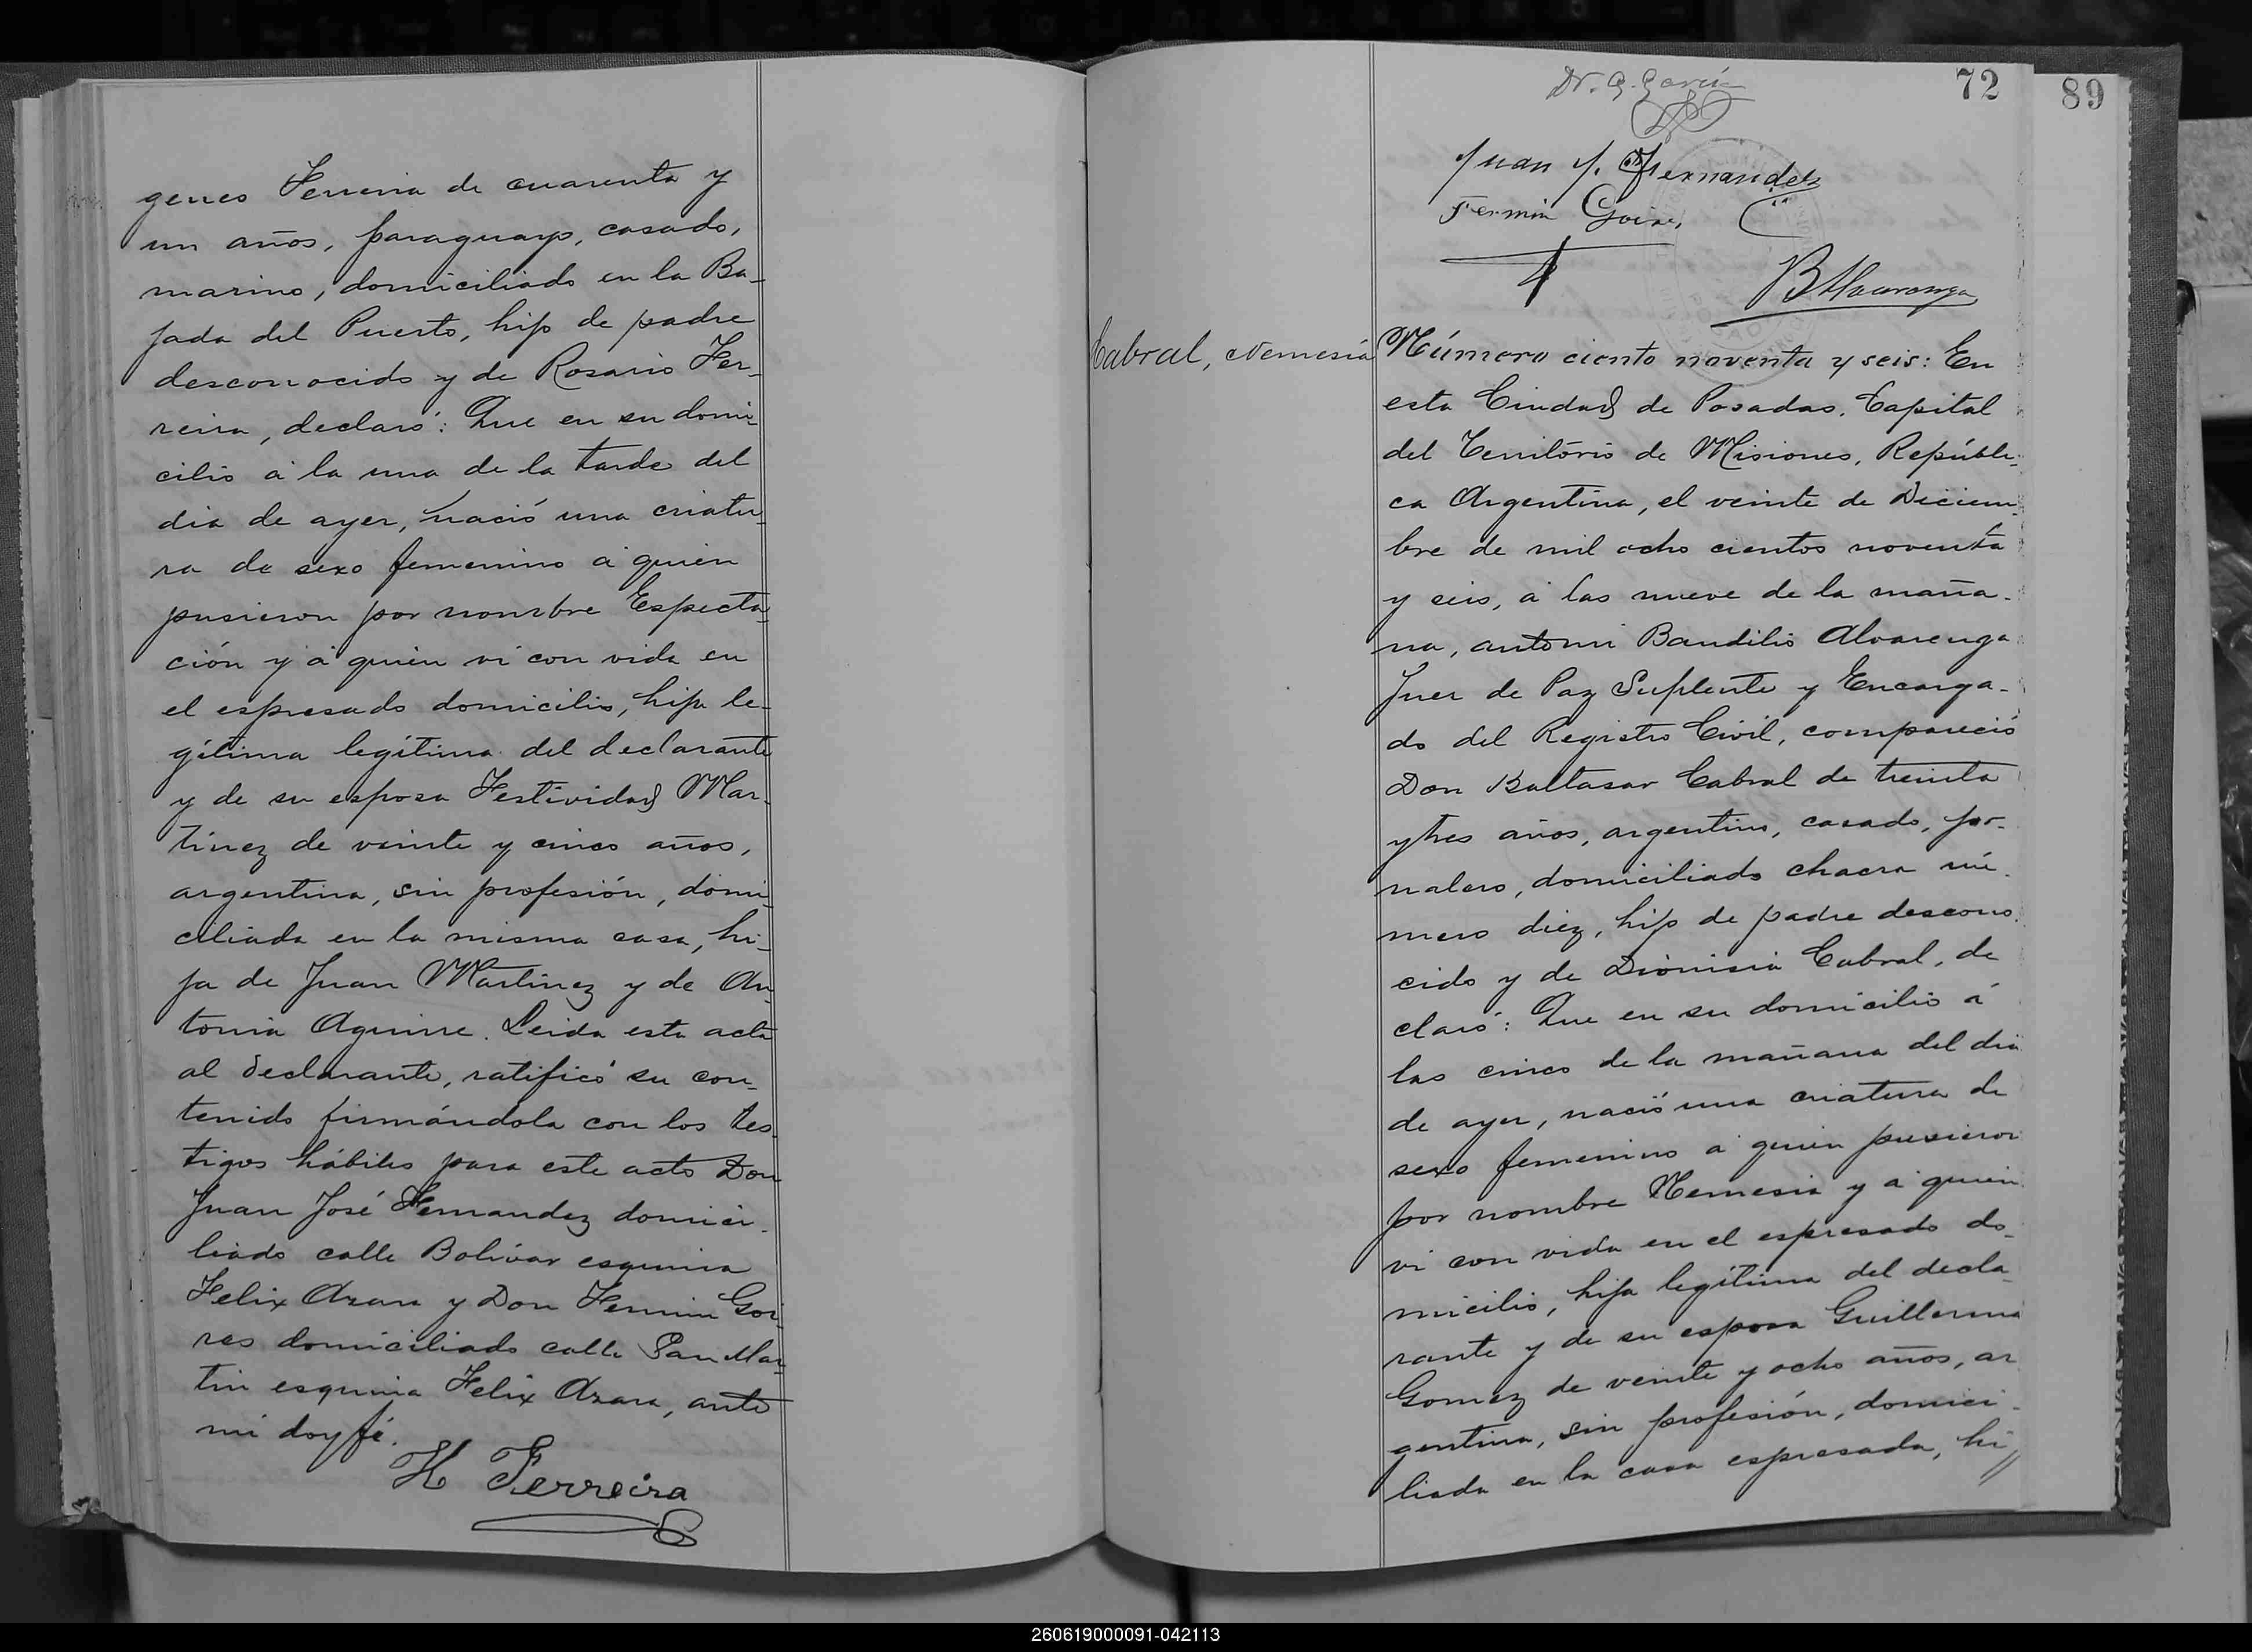 genes Ferreira de cuarenta y
un años, paraguayo, casado,
marino, domiciliado en la Ba-
jada del Puerto, hijo de padre
desconocido y de Rosario Fer-
reira, declaró: Que en su domi-
cilio á la una de la tarde del
dia de ayer, nació una criatu-
ra de sexo femenino á quien
pusieron por nombre Especta-
ción y á quien ví con vida en
el espresado domicilio, hija le-
gítima legítima del declarante
y de su esposa Festividad Mar-
tinez de veinte y cinco años,
argentina, sin profesión, domi-
ciliada en la misma casa, hi-
ja de Juan Martinez y de An-
tonia Aguirre. Leida esta acta
al declarante, ratificó su con-
tenido firmándola con los tes-
tigos hábiles para este acto Don
Juan José Fernandez domici-
liado calle Bolívar esquina
Felix Azara y Don Fermin Goi-
res domiciliado calle San Mar-
tin esquina Felix Azara, ante
mi doy fé.
H Ferreira
72
89
Dr. G. García
Juan J. Fernandez
Fermin Goires
B Alvarenga
Cabral, Nemesia
Número ciento noventa y seis: En
esta Ciudad de Posadas, Capital
del Territorio de Misiones, Repúbli-
ca Argentina, el veinte de Diciem-
bre de mil ocho cientos noventa
y seis, á las nueve de la maña-
na, ante mi Baudilio Alvarenga
Juez de Paz Suplente y Encarga-
do del Registro Civil, compareció
Don Baltasar Cabral de treinta
y tres años, argentino, casado, jor-
nalero, domiciliado chacra nú-
mero diez, hijo de padre descono-
cido y de Dionisia Cabral, de
claró: Que en su domicilio á
las cinco de la mañana del dia
de ayer, nació una criatura de
sexo femenino á quien pusieron
por nombre Nemesia y á quien
ví con vida en el espresado do-
micilio, hija legítima del decla-
rante y de su esposa Guillerma
Gomez de veinte y ocho años, ar
gentina, sin profesión, domici-
liada en la casa espresada, hi//
260619000091-042113